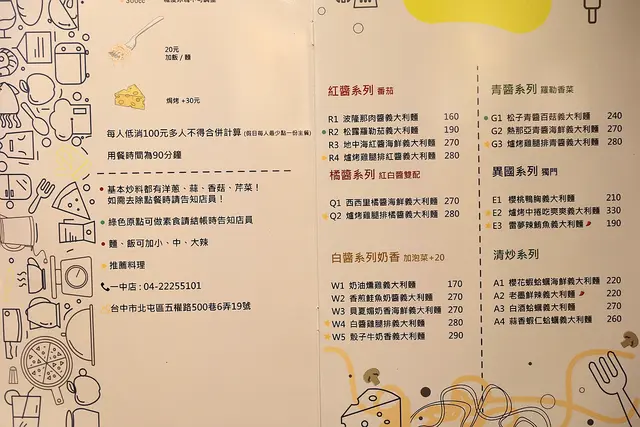 20元
加飯 / 麵
焗烤 +30元
每人低消100元多人不得合併計算 (假日每人最少點一份主餐)
用餐時間為90分鐘
基本炒料都有洋蔥、蒜、香菇、芹菜！
如需去除點餐時請告知店員！
綠色原點可做素食請結帳時告知店員
麵、飯可加小、中、大辣
推薦料理
一中店 : 04-22255101
台中市北屯區五權路500巷6弄19號
紅醬系列 番茄
R1 波隆那肉醬義大利麵 160
R2 松露羅勒茄義大利麵 190
R3 地中海紅醬海鮮義大利麵 270
R4 爐烤雞腿排紅醬義大利麵 280
橘醬系列 紅白醬雙配
Q1 西西里橘醬海鮮義大利麵 270
Q2 爐烤雞腿排橘醬義大利麵 280
白醬系列奶香 加泡菜+20
W1 奶油燻雞義大利麵 170
W2 香煎鮭魚奶醬義大利麵 270
W3 貝夏媚奶香海鮮義大利麵 270
W4 白醬雞腿排義大利麵 280
W5 骰子牛奶香義大利麵 290
青醬系列 羅勒香菜
G1 松子青醬百菇義大利麵 240
G2 熱那亞青醬海鮮義大利麵 270
G3 爐烤雞腿排青醬義大利麵 280
異國系列 獨門
E1 櫻桃鴨胸義大利麵 210
E2 爐烤中捲吃爽爽義大利麵 330
E3 雷夢辣鯖魚義大利麵 190
清炒系列
A1 櫻花蝦蛤蠣海鮮義大利麵 220
A2 老墨鮮辣義大利麵 220
A3 白酒蛤蠣義大利麵 270
A4 蒜香蝦仁蛤蠣義大利麵 260